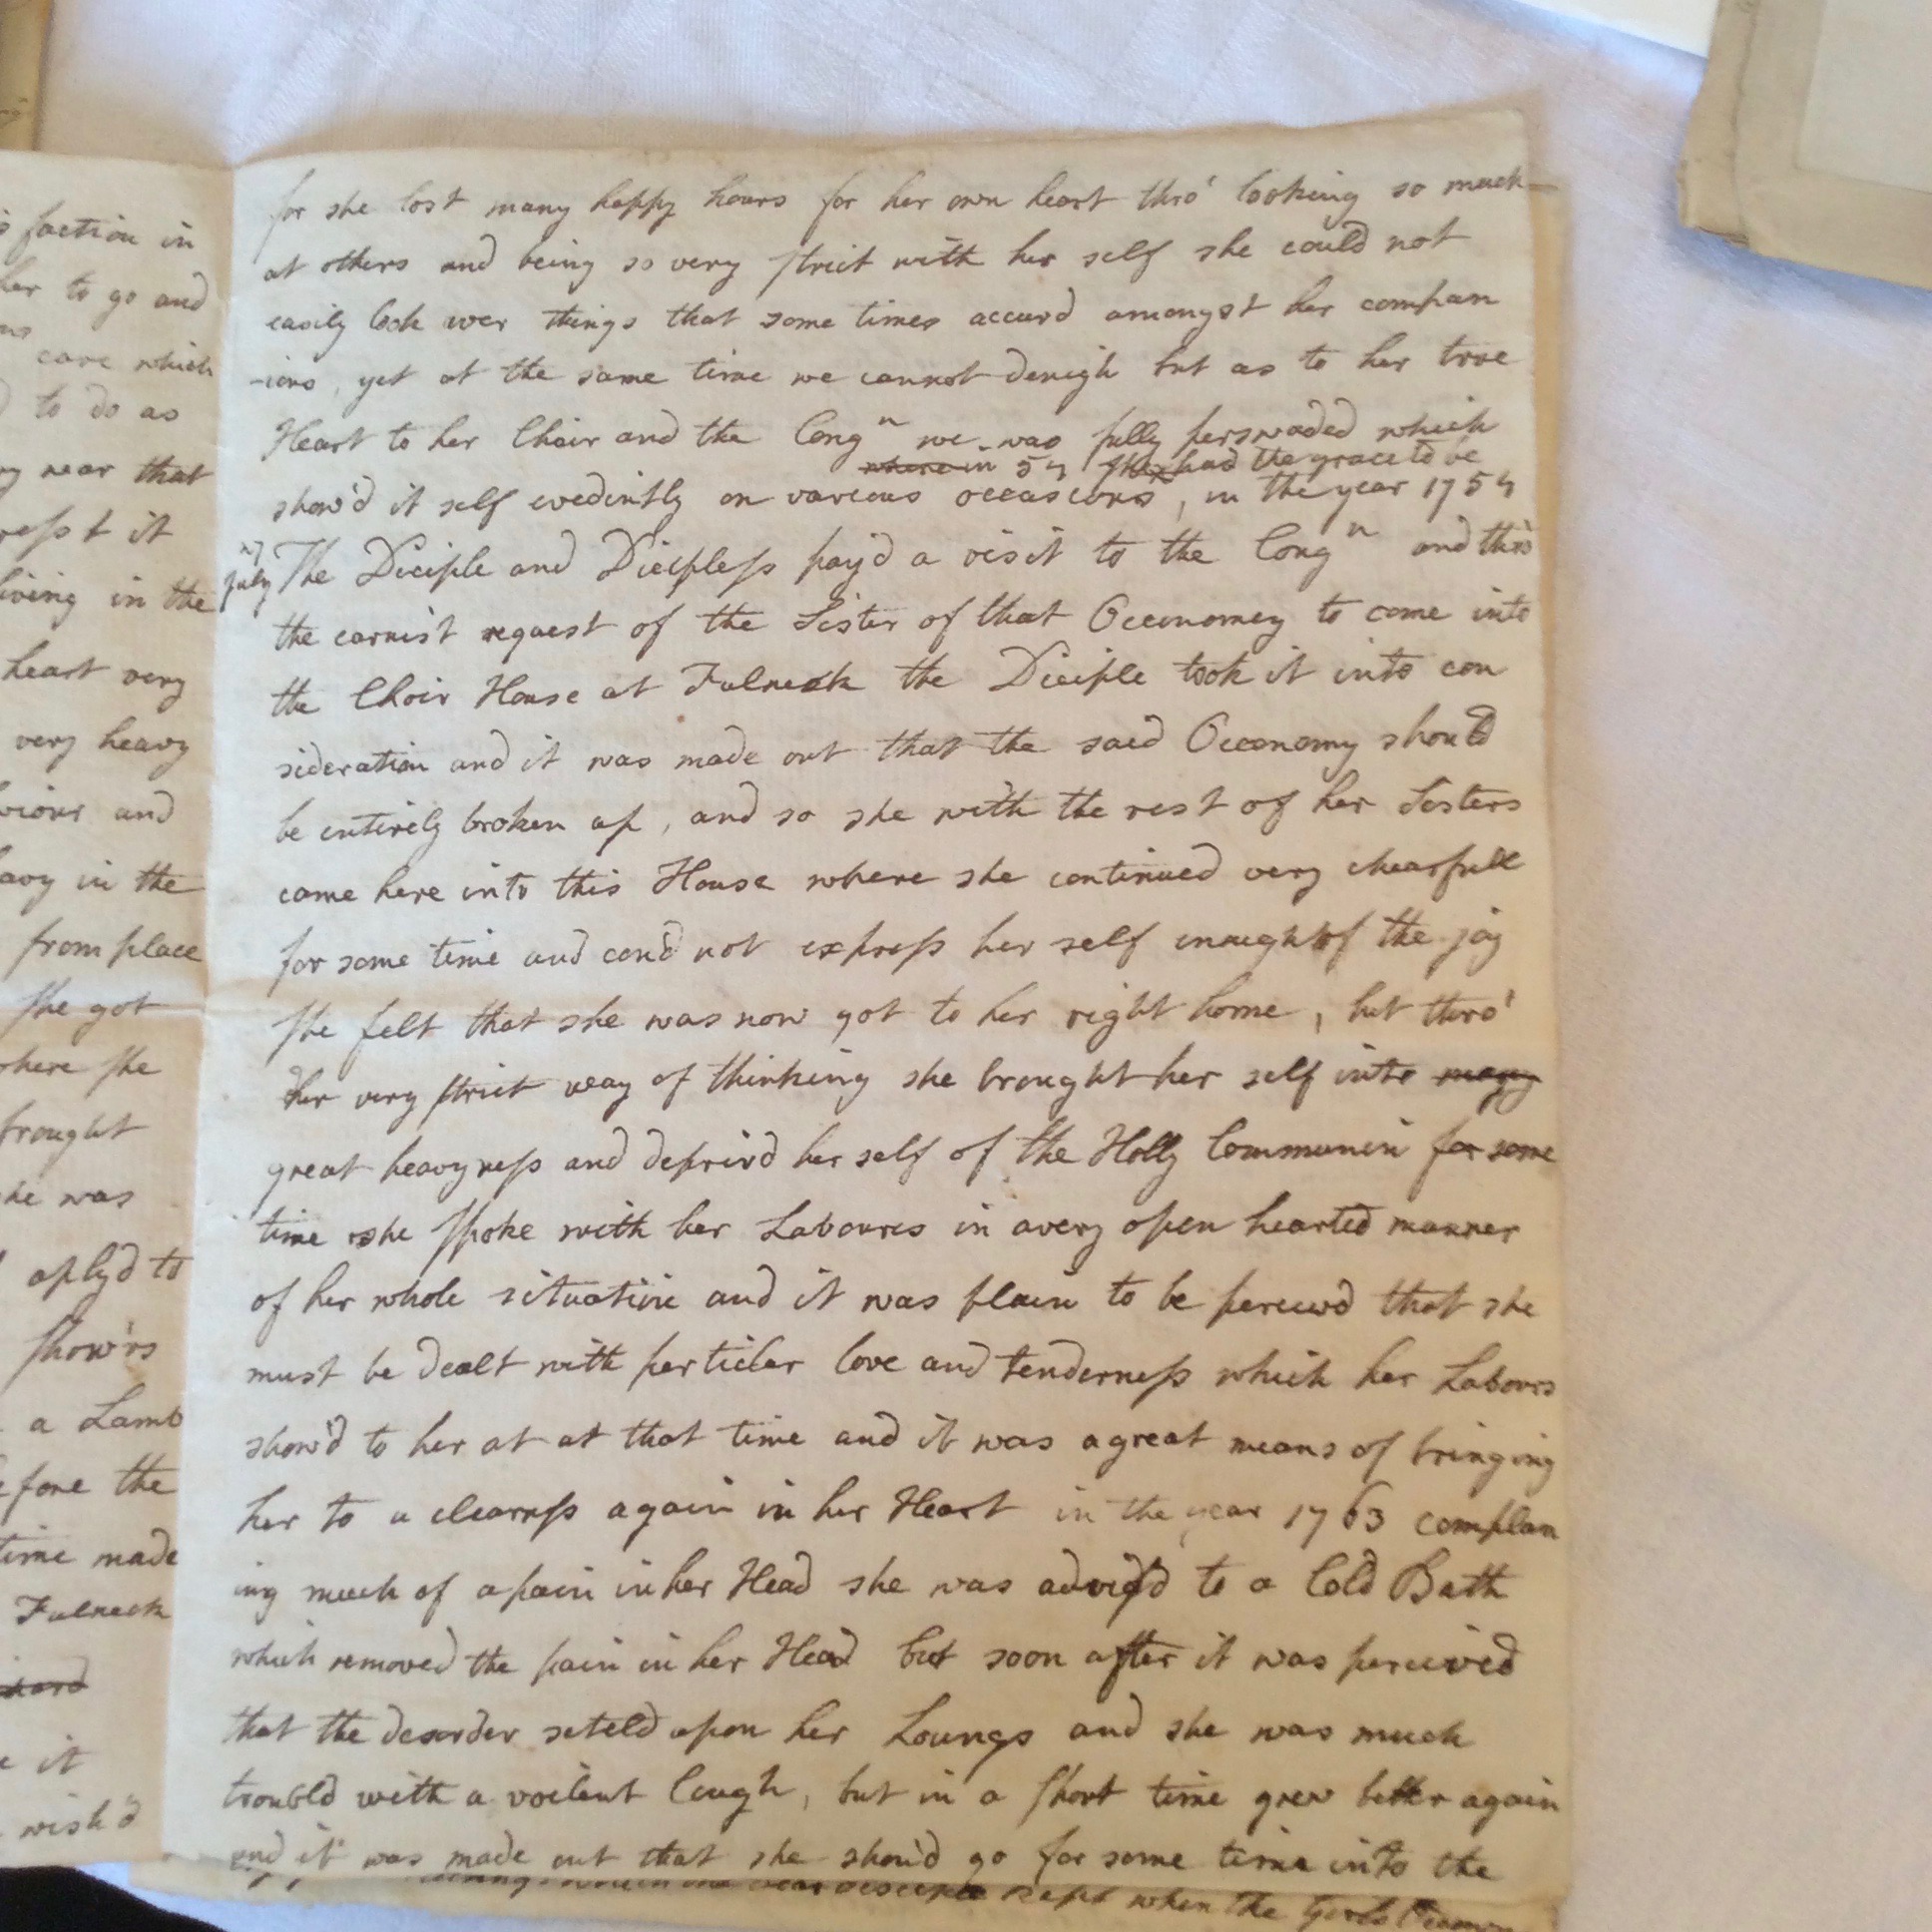 s faction in
her to go and
ns
care which
to do as
near that
refs t it
living in the
heart very
very heavy
viour and
in the
from place
she got
where she
brought
he was
aply'd to
show'rs
a Lamb
efore the
time made
Fulneck
e it
wish'd
for she lost many happy hours for her own heart thro' looking so much
at others and being so very strict with her self she could not
easily look over things that some times accurd amongst her compan
-ions, yet at the same time we cannot denigh but as to her true
Heart to her Choir and the Congn we was fully perswaded which
where in 54 she had the grace to be
show'd it self evedintly on various occasions, in the year 1754
July
The Diciple and Diciplefs pay'd a visit to the Congn and thro
the earnist request of the Sister of that Oeconomey to come into
the Choir House at Fulneck the Diciple took it into con
sideration and it was made out that the said Oeconomy should
be entirely broken up, and so she with the rest of her Sisters
came here into this House where she continued very chearfull
for some time and cou'd not exprefs her self enough of the joy
she felt that she was now got to her right home, but thro'
Her very strict way of thinking she brought her self into many
great heavynefs and depriv'd her self of the Holly Communin for some
time she spoke with her Labourers in avery open hearted manner
of her whole situation and it was plain to be perciev'd that she
must be dealt with perticler love and tendernefs which her Labours
show'd to her at at that time and it was agreat means of bringing
her to a clearnefs again in her Heart in the year 1763 complan
ing much of apain in her Head she was advis'd to a Cold Bath
which removed the pain in her Head but soon after it was perceived
that the desorder seteld upon her Loungs and she was much
troubl'd with a voilent Cough, but in a short time grew better again
and it was made out that she shou'd go for some time into the
kept when the Girls